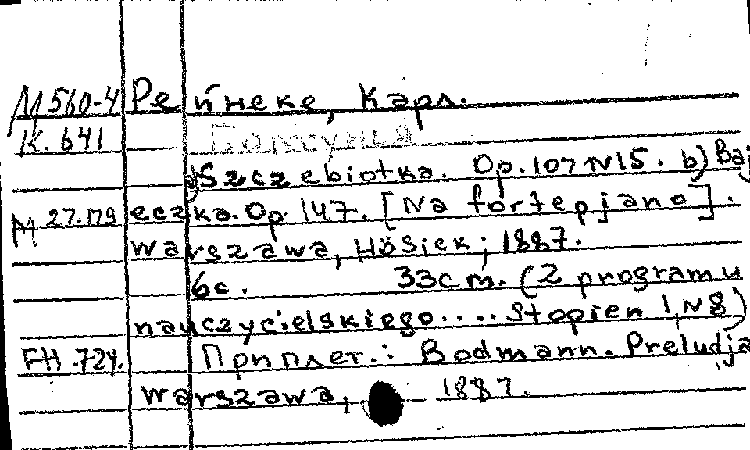 М560-4 Рейнеке, Карл.
К. 641
a) Szczebiotka. Op. 107 N15. b) Baj
М 27.179 eczka. Op. 147. [Na fortepjano].
Warszawa, Hösick; 1887.
6с. 33cm. (Z programu
nauczycielskiego.... Stopien I, N8)
FH.724. Приплет.: Bodmann. Preludja
Warszawa, 1887.